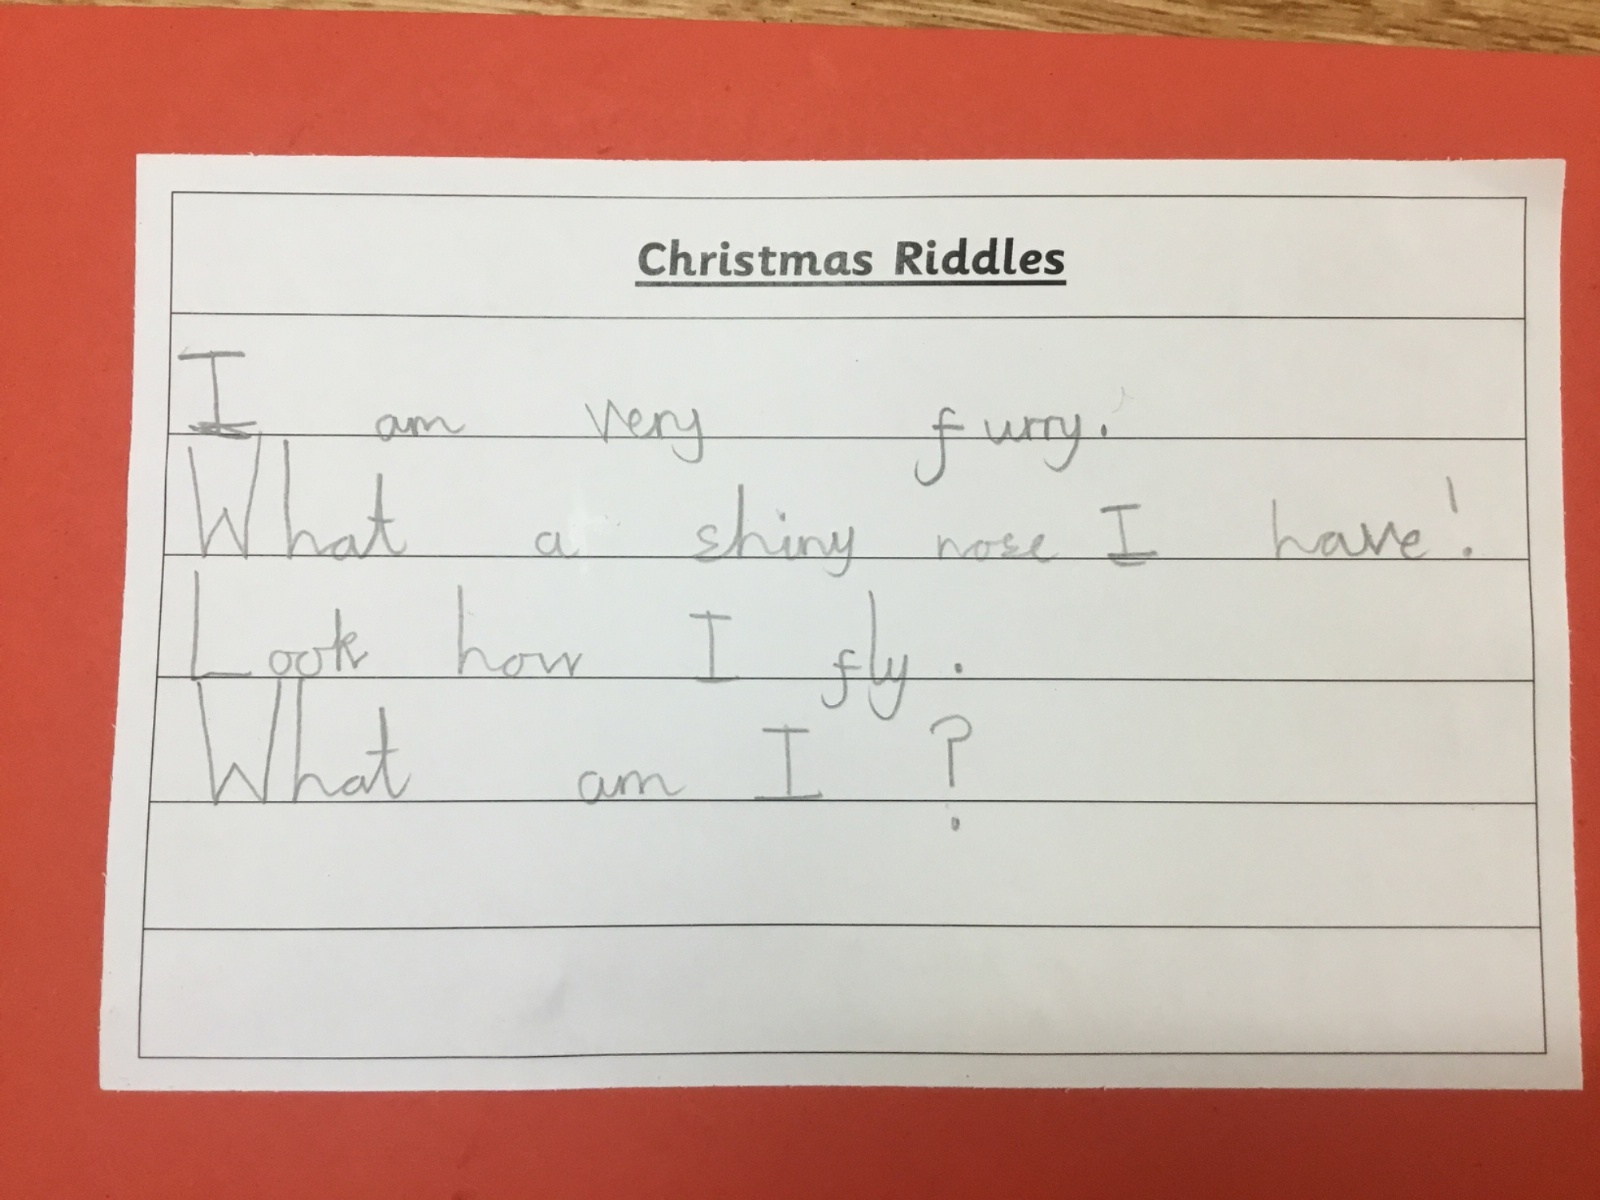 Christmas Riddles
I am very furry.
What a shiny nose I have!
Look how I fly.
What am I?